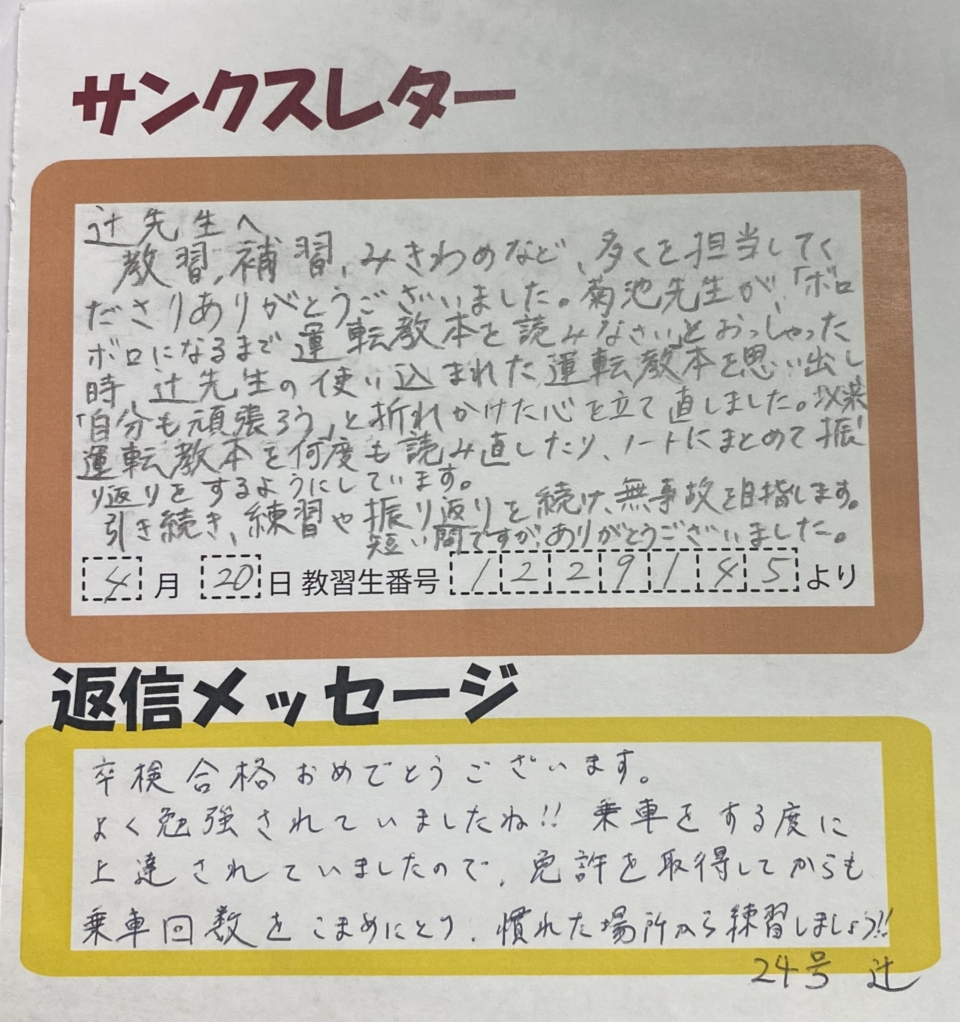 サンクスレター
辻先生へ
教習,補習,みきわめなど、多くを担当してく
ださりありがとうございました。菊池先生が、「ボロ
ボロになるまで運転教本を読みなさい」とおっしゃった
時、辻先生の使い込まれた運転教本を思い出し
「自分も頑張ろう」と折れかけた心を立て直しました。以来
運転教本を何度も読み直したり、ノートにまとめて振
り返りをするようにしています。
引き続き、練習や振り返りを続け、無事故を目指します。
短い間ですが、ありがとうございました。
4月20日 教習生番号 1229145より
返信メッセージ
卒検合格おめでとうございます。
よく勉強されていましたね!! 乗車をする度に
上達されていましたので、免許を取得してからも
乗車回数をこまめにとり、慣れた場所から練習しましょう!!
24号 辻